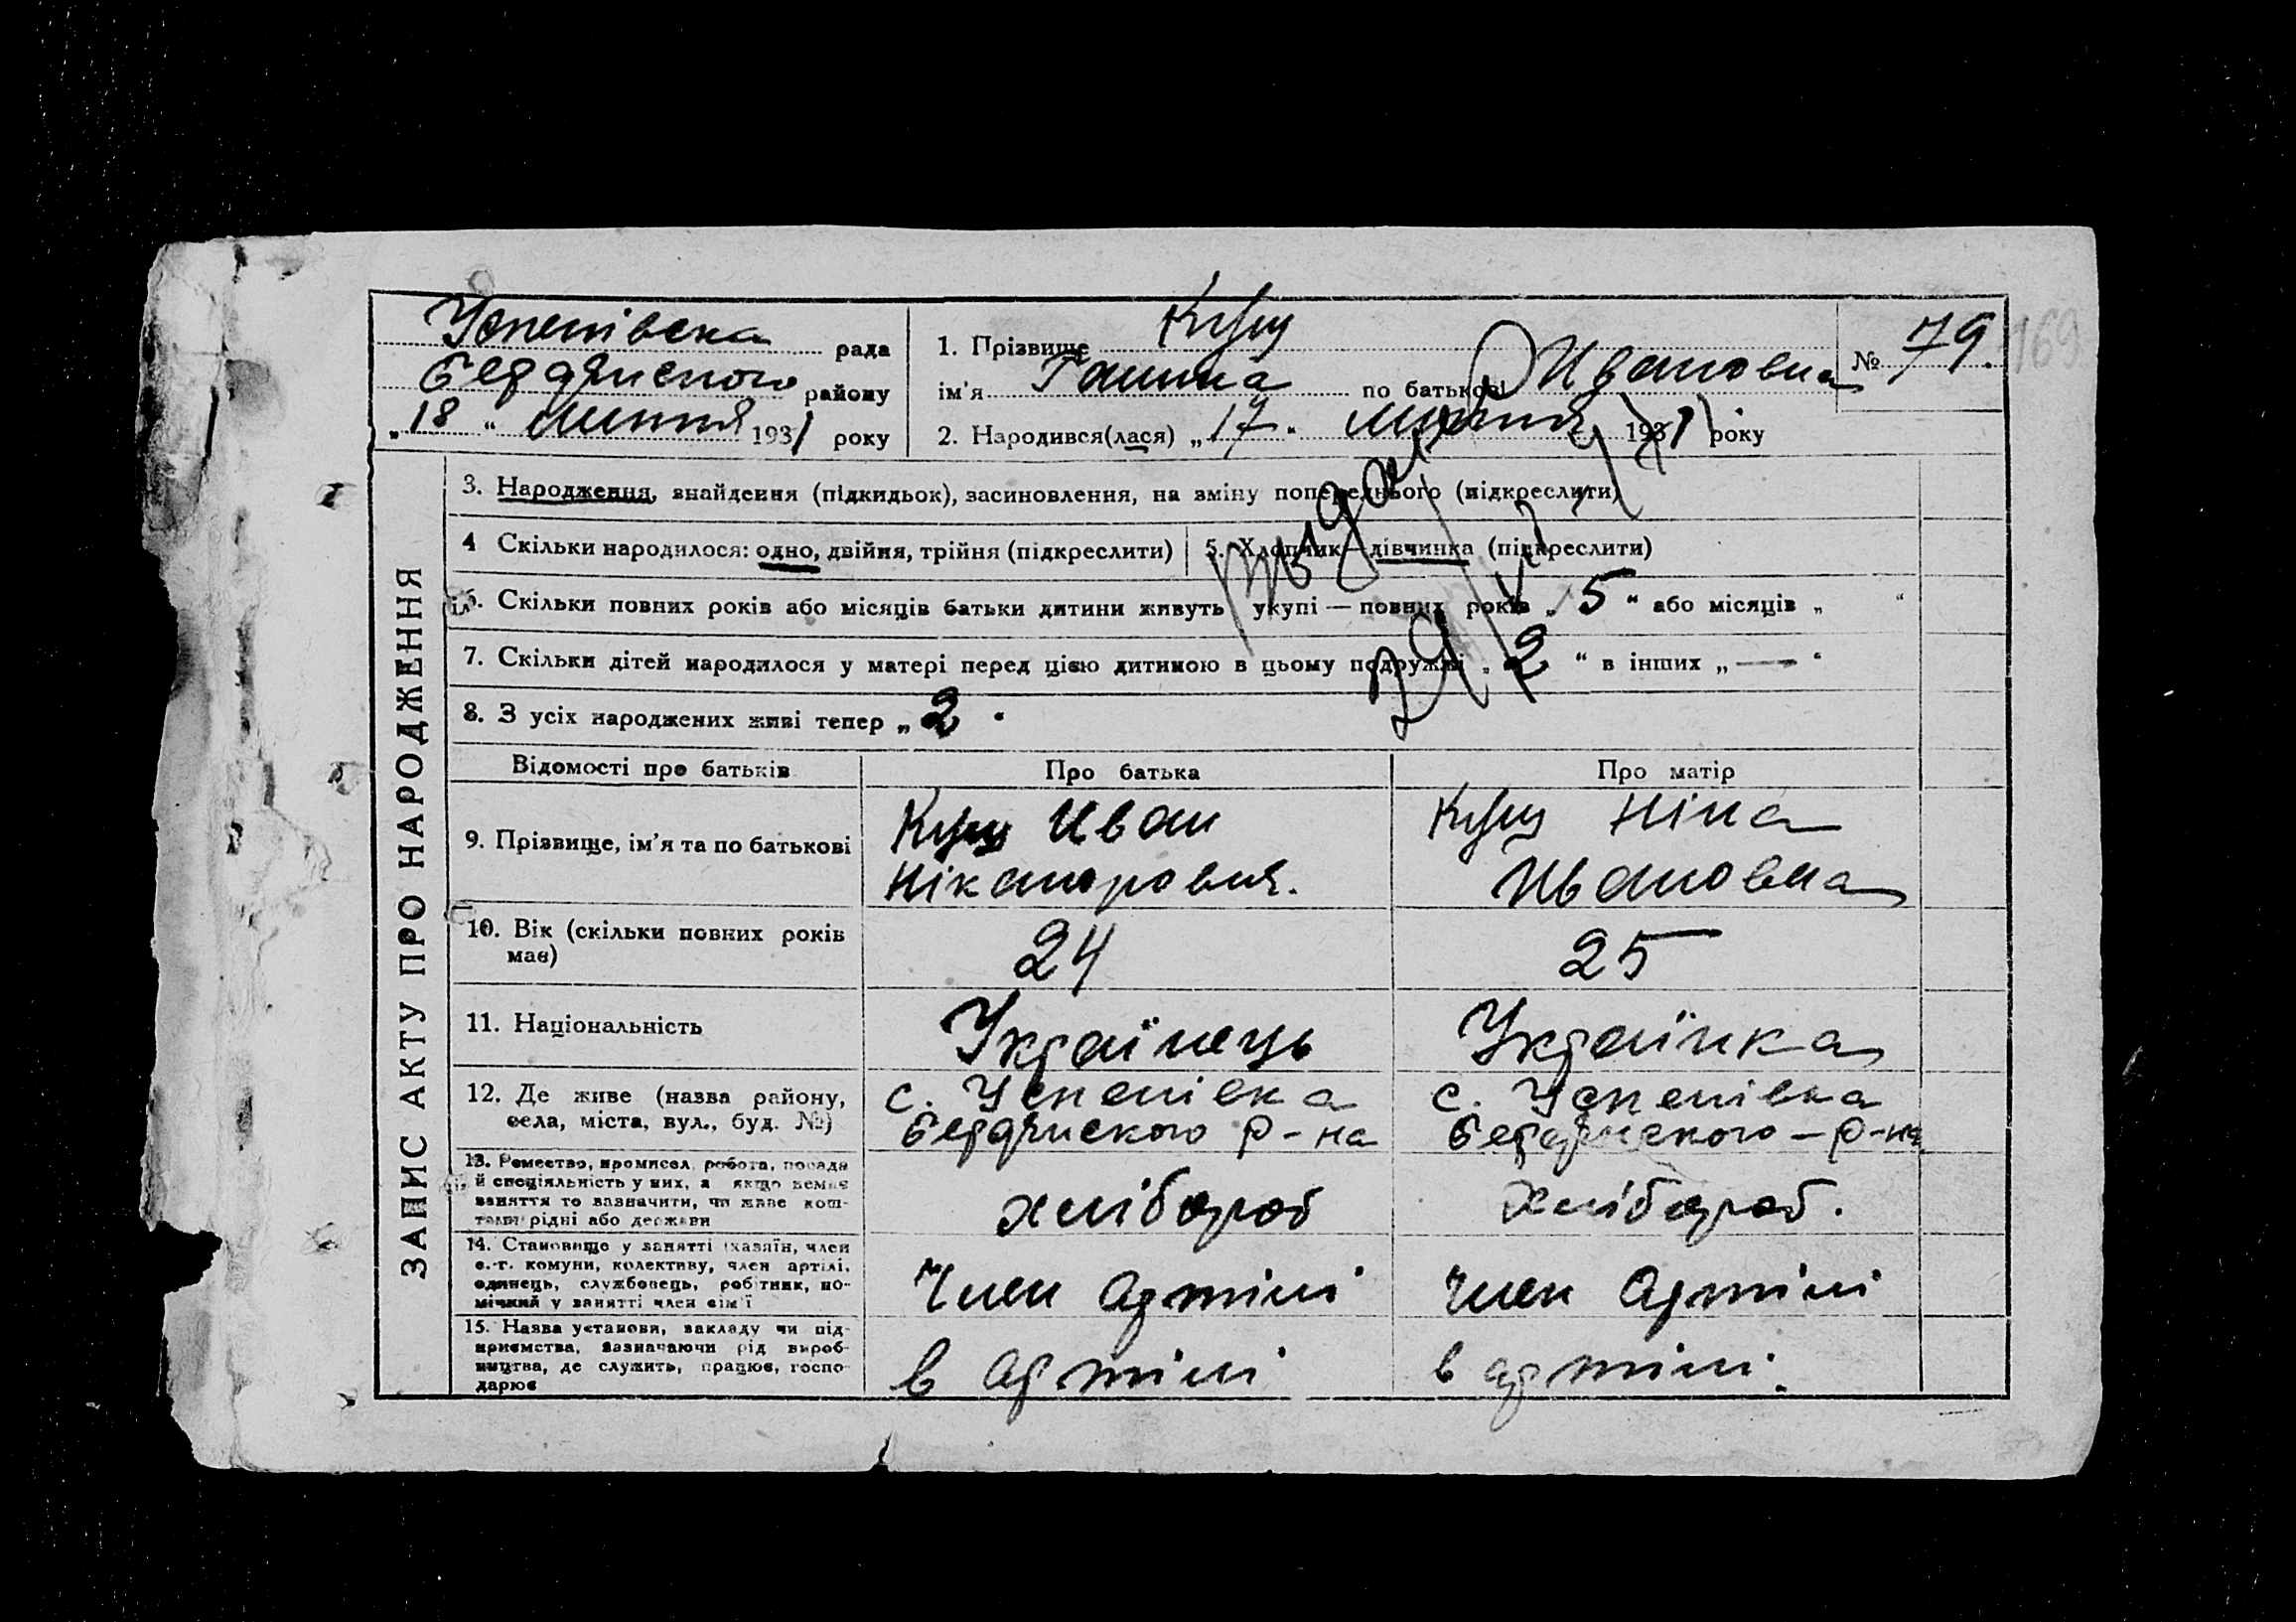 Успенівска рада
Бердянського району
„18“ липня 1931 року
1. Прізвище Кущ
ім'я Галина по батькові Ивановна
№ 79.
169
2. Народився(лася) „17“ липня 1931 року
ЗАПИС АКТУ ПРО НАРОДЖЕННЯ
3. Народження, знайдення (підкидьок), засиновлення, на зміну попереднього (підкреслити)
4 Скільки народилося: одно, двійня, трійня (підкреслити)
5. Хлопчик—дівчинка (підкреслити)
6. Скільки повних років або місяців батьки дитини живуть укупі — повних років „5“ або місяців „ “
7. Скільки дітей народилося у матері перед цією дитиною в цьому подружжі „2“ в інших „—“
8. З усіх народжених живі тепер „2“
Відомості про батьків
Про батька
Про матір
9. Прізвище, ім'я та по батькові
Кущ Иван
Ніканорович.
Кущ Ніна
Ивановна
10. Вік (скільки повних років
має)
24
25
11. Національність
Українець
Українка
12. Де живе (назва району,
села, міста, вул., буд. №)
с. Успенівка
Бердянского р-на
с. Успенівка
Бердянского-р-на
13. Ремество, промисел, робота, посада
й спеціяльність у них, а якщо немає
заняття то зазначити, чи живе кош-
тами рідні або держави
хлібороб
Хлібороб.
14. Становище у занятті (хазяїн, член
с.-г. комуни, колективу, член артілі,
одинець, службовець, робітник, по-
мічний у занятті член сім'ї
Член артілі
Член артілі
15. Назва установи, закладу чи під-
приємства, зазначаючи рід вироб-
ництва, де служить, працює, госпо-
дарює
в артілі
в артілі.